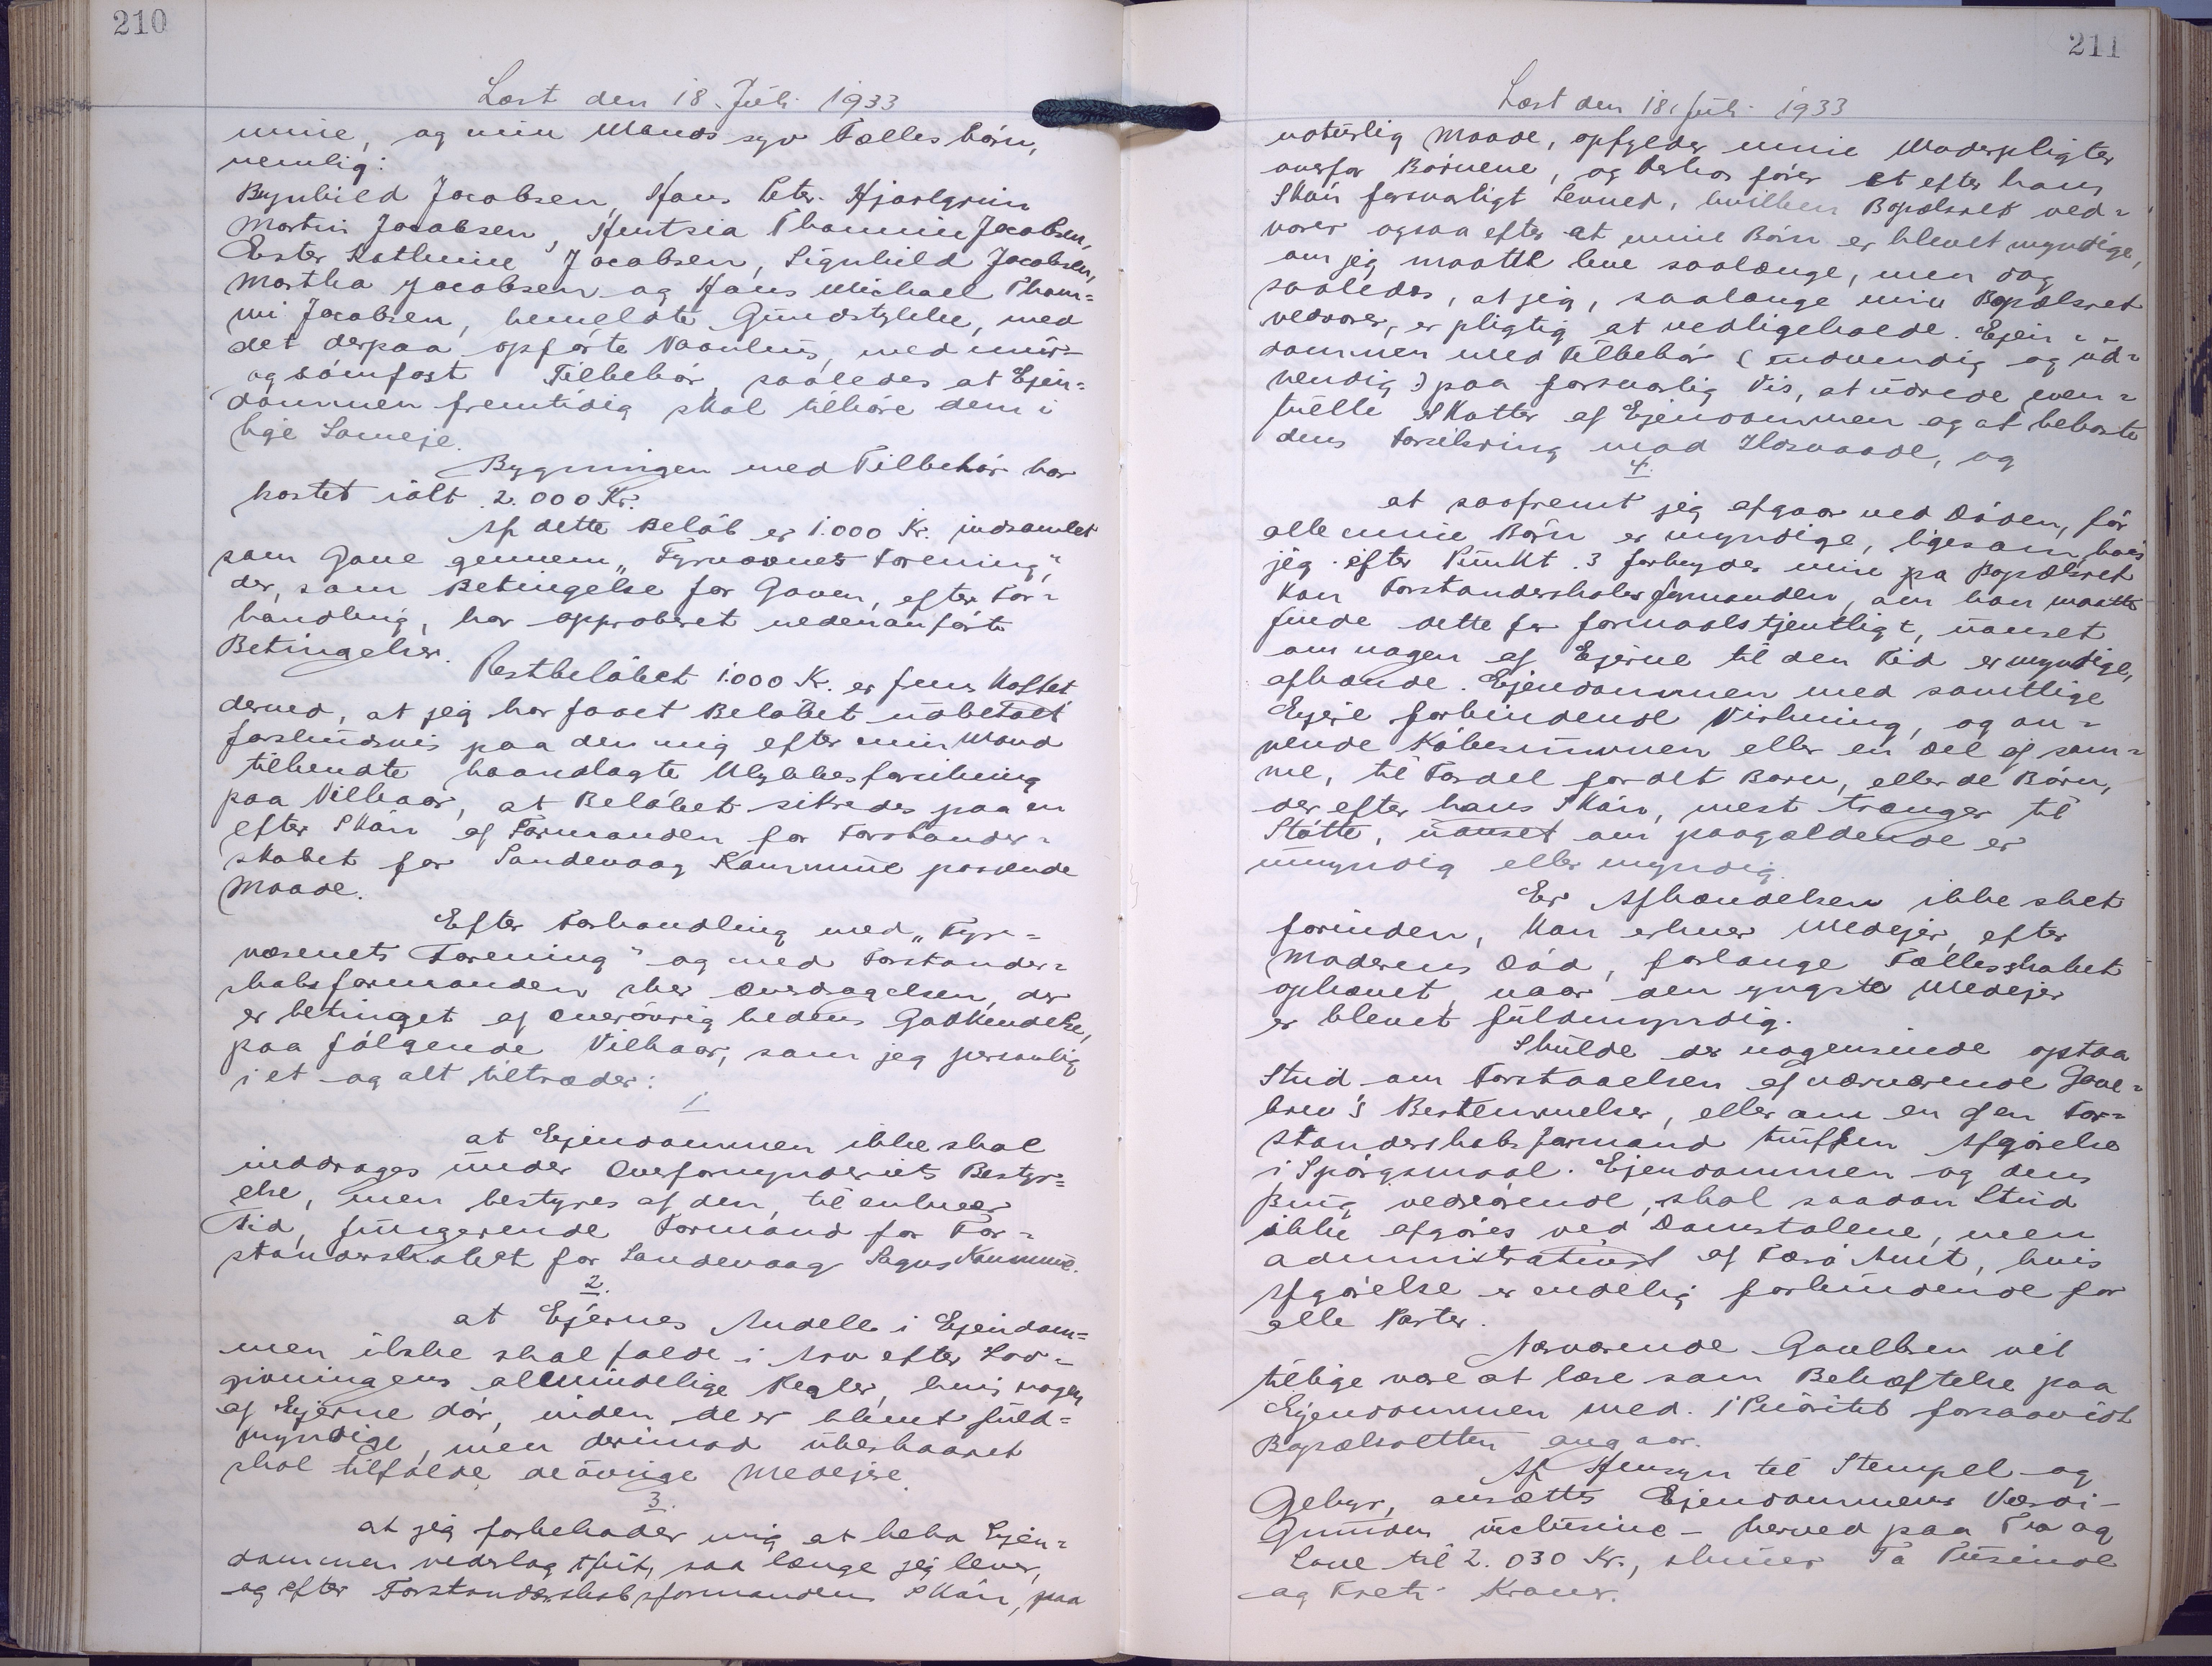 210
Læst den 18. Juli 1933
mine, og min Mands syv Fælles børn,
nemlig:
Brynhild Jacobsen, Hans Peter Hjørlgrim
Martin Jacobsen, Jentsia Thomine Jacobsen,
Ester Kathrine Jacobsen, Signhild Jacobsen,
Martha Jacobsen og Hans Michael Thom=
mi Jacobsen, bemeldte Grundstykke, med
det derpaa opførte Vaanhus, med mur-
og sømfast Tilbehør, saaledes at Ejen=
dommen fremtidig skal tilhøre dem i
lige Sameje.
Bygningen med Tilbehør har
kostet ialt 2.000 Kr.
Af dette Beløb er 1.000 Kr. indsamlet
som Gave gennem „Fyrvæsnets Forening",
der, som Betingelse for Gaven, efter For=
handling, har approberet nedenanførte
Betingelser.
Restbeløbet 1.000 Kr. er fremskaffet
derved, at jeg har faaet Beløbet udbetalt
forskudsvis paa den mig efter min Mand
tilkendte haandlagte Ulykkesforsikring
paa Vilkaar, at Beløbet sikredes paa en
efter Skøn af Formanden for Forstander=
skabet for Sandevaag Kommune passende
Maade.
Efter Forhandling med „Fyr=
væsenets Forening" og med Forstander=
skabsformanden sker Overdragelsen, der
er betinget af Overøvrighedens Godkendelse,
paa følgende Vilkaar, som jeg personlig
i et og alt tiltræder:
1.
at Ejendommen ikke skal
inddrages under Overformynderiets Besty=
else, men bestyres af den, til enhver
Tid, fungerende Formand for For=
standerskabet for Sandevaag Sogns Kommune.
2.
at Ejernes Andele i Ejendom=
men ikke skal falde i Arv efter Lov=
givningens almindelige Regler, hvis nogen
af Ejerne dør, inden de er blevet fuld=
myndige, men derimod ubeskaaret
skal tilfalde de øvrige Medejere.
3.
at jeg forbeholder mig at bebo Ejen=
dommen vederlagsfrit, saa længe jeg lever,
og efter Forstanderskabsformandens Skøn, paa
211
Læst den 18. Juli 1933
naturlig Maade, opfylder mine Moderpligter
overfor Børnene, og derhos fører et efter hans
Skøn forsvarligt Levned, hvilken Bopælsret ved=
varer ogsaa efter at mine Børn er blevet myndige,
om jeg maatte leve saalænge, men dog
saaledes, at jeg, saalænge min Bopælsret
vedvarer, er pligtig at vedligeholde Ejen=
dommen med Tilbehør (indvendig og ud=
vendig) paa forsvarlig Vis, at udrede even=
tuelle Skatter af Ejendommen og at bekoste
dens Forsikring mod Ildsvaade, og
4.
at saafremt jeg afgaar ved Døden, før
alle mine Børn er myndige, ligesom hvis
jeg efter Punkt 3 forbryder min pa Bopælsret
kan Forstanderskabsformanden, om han maatte
finde dette for formaalstjentligt, uanset
om nogen af Ejerne til den Tid er myndige,
afhænde Ejendommen med samtlige
Ejere forbindende Virkning, og an=
vende Købesummen eller en Del af sam=
me, til Fordel for det Barn, eller de Børn,
der efter hans Skøn, mest trænger til
Støtte, uanset om paagældende er
umyndig eller myndig.
Er Afhændelsen ikke sket
forinden, kan enhver Medejer, efter
Moderens Død, forlange Fællesskabet
ophævet, naar den yngste Medejer
er blevet fuldmyndig.
Skulde der nogensinde opstaa
Strid om Forstaaelsen af nærværende Gave=
brev's Bestemmelser, eller om en af en For=
standerskabsformand truffen Afgørelse
i Spørgsmaal Ejendommen og dens
Brug vedrørende, skal saadan Strid
ikke afgøres ved Domstolene, men
administrativt af Færø Amt, hvis
Afgørelse er endelig forbindende for
alle Parter.
Nærværende Gavebrev vil
tillige være at læse som Behæftelse paa
Ejendommen med 1 Prioritet forsaavidt
Bopælsretten angaar.
Af Hensyn til Stempel og
Gebyr, ansættes Ejendommens Værdi -
Grunden inclusive - herved paa Tro og
Love til 2.030 Kr., skriver To Tusinde
og Treti Kroner.